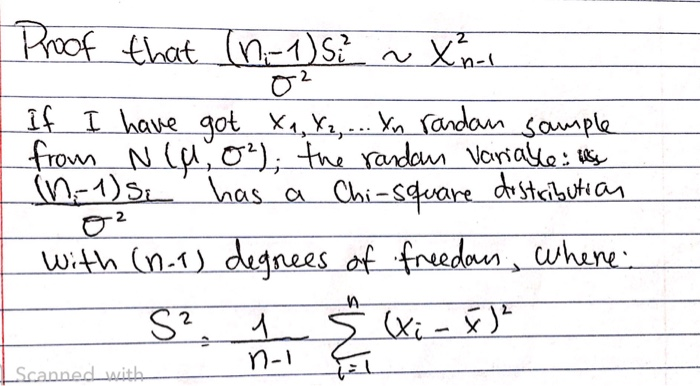 Proof that (nᵢ-1)Sᵢ² / σ² ~ X²ₙ₋₁
If I have got x₁, x₂, ... xₙ randan sample
from N (μ, σ²); the randan variable:
(nᵢ-1)Sᵢ / σ² has a Chi-square distribution
with (n-1) degrees of freedan, where:
S² = 1/(n-1) Σᵢ₌₁ⁿ (xᵢ - x̄)²
Scanned with